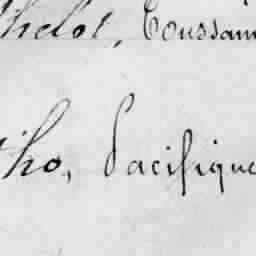 thelot, Toussain
tho, Pacifique